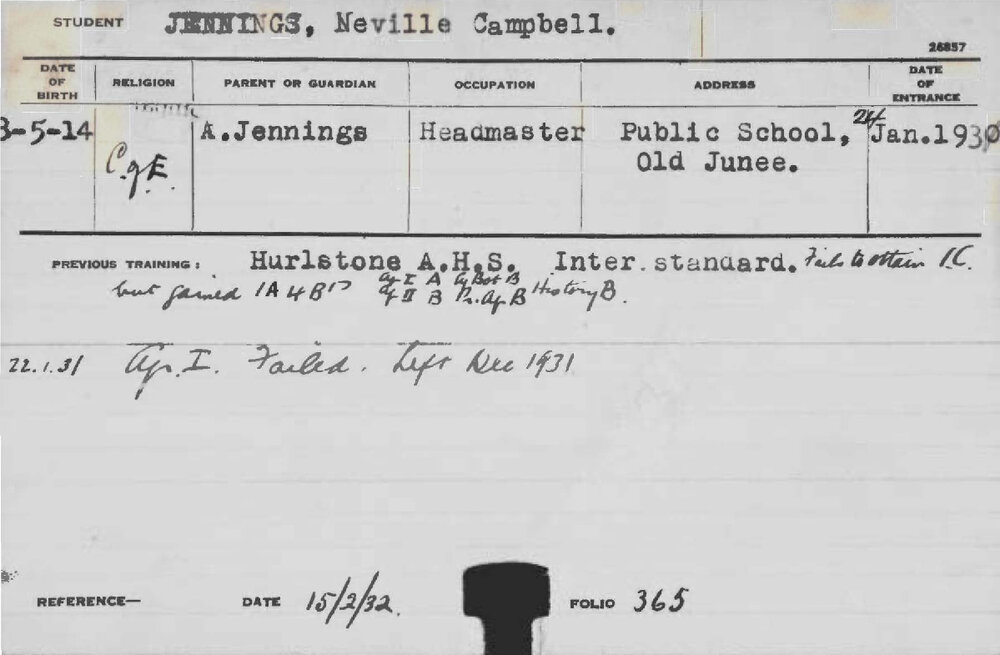 STUDENT JENNINGS, Neville Campbell.
26857
DATE OF BIRTH RELIGION PARENT OR GUARDIAN OCCUPATION ADDRESS DATE OF ENTRANCE
3-5-14 C of E. A.Jennings Headmaster Public School, 24 Jan.1930
Old Junee.
PREVIOUS TRAINING: Hurlstone A.H.S. Inter.standard. Fails to obtain I.C.
but gained 1A 4B Ag I A Ag Bot B
Ag II B Pr. Ag B History B.
22.1.31 Agr. I. Failed. Left Dec 1931
REFERENCE— DATE 15/2/32. FOLIO 365